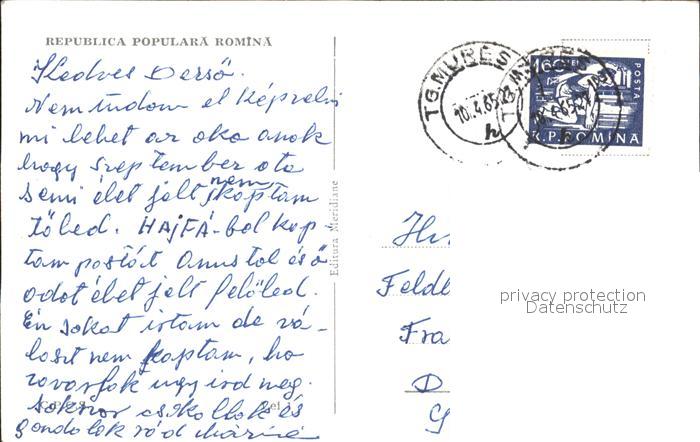 REPUBLICA POPULARĂ ROMÎNĂ
Kedves Dersö.
Nem tudom el képzelni
mi lehet az oka anok
hogy szeptember ota
semi élet jelt nem kaptam
töled. HAJFÁ-bol kap
tam postát Anustol és ö
adot élet jelt felöled.
Én sokat irtam de vá-
laszt nem kaptam, ha
ugy ird meg.
és
gondolok rád
Editura Meridiane
TG. MUREȘ
10.4.65.23
h
1,60
POSTA
R.P. ROMINA
Feld
Fra
D
privacy protection
Datenschutz